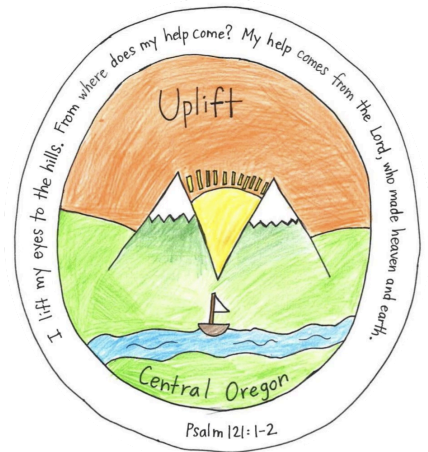 I lift my eyes to the hills. From where does my help come? My help comes from the Lord, who made heaven and earth.
Uplift
Central Oregon
Psalm 121:1-2